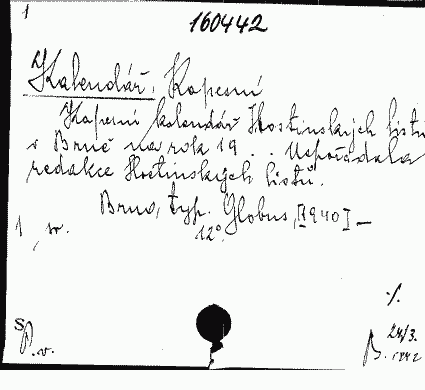 1
160442
Kalendář, Kapesní
Kapesní kalendář Hostinských listů
v Brně na rok 19 . . Uspořádala
redakce Hostinských listů.
Brno, typ. Globus, [1940] –
12°.
1
S
P. v.
·/.
24/3.
B. 1942